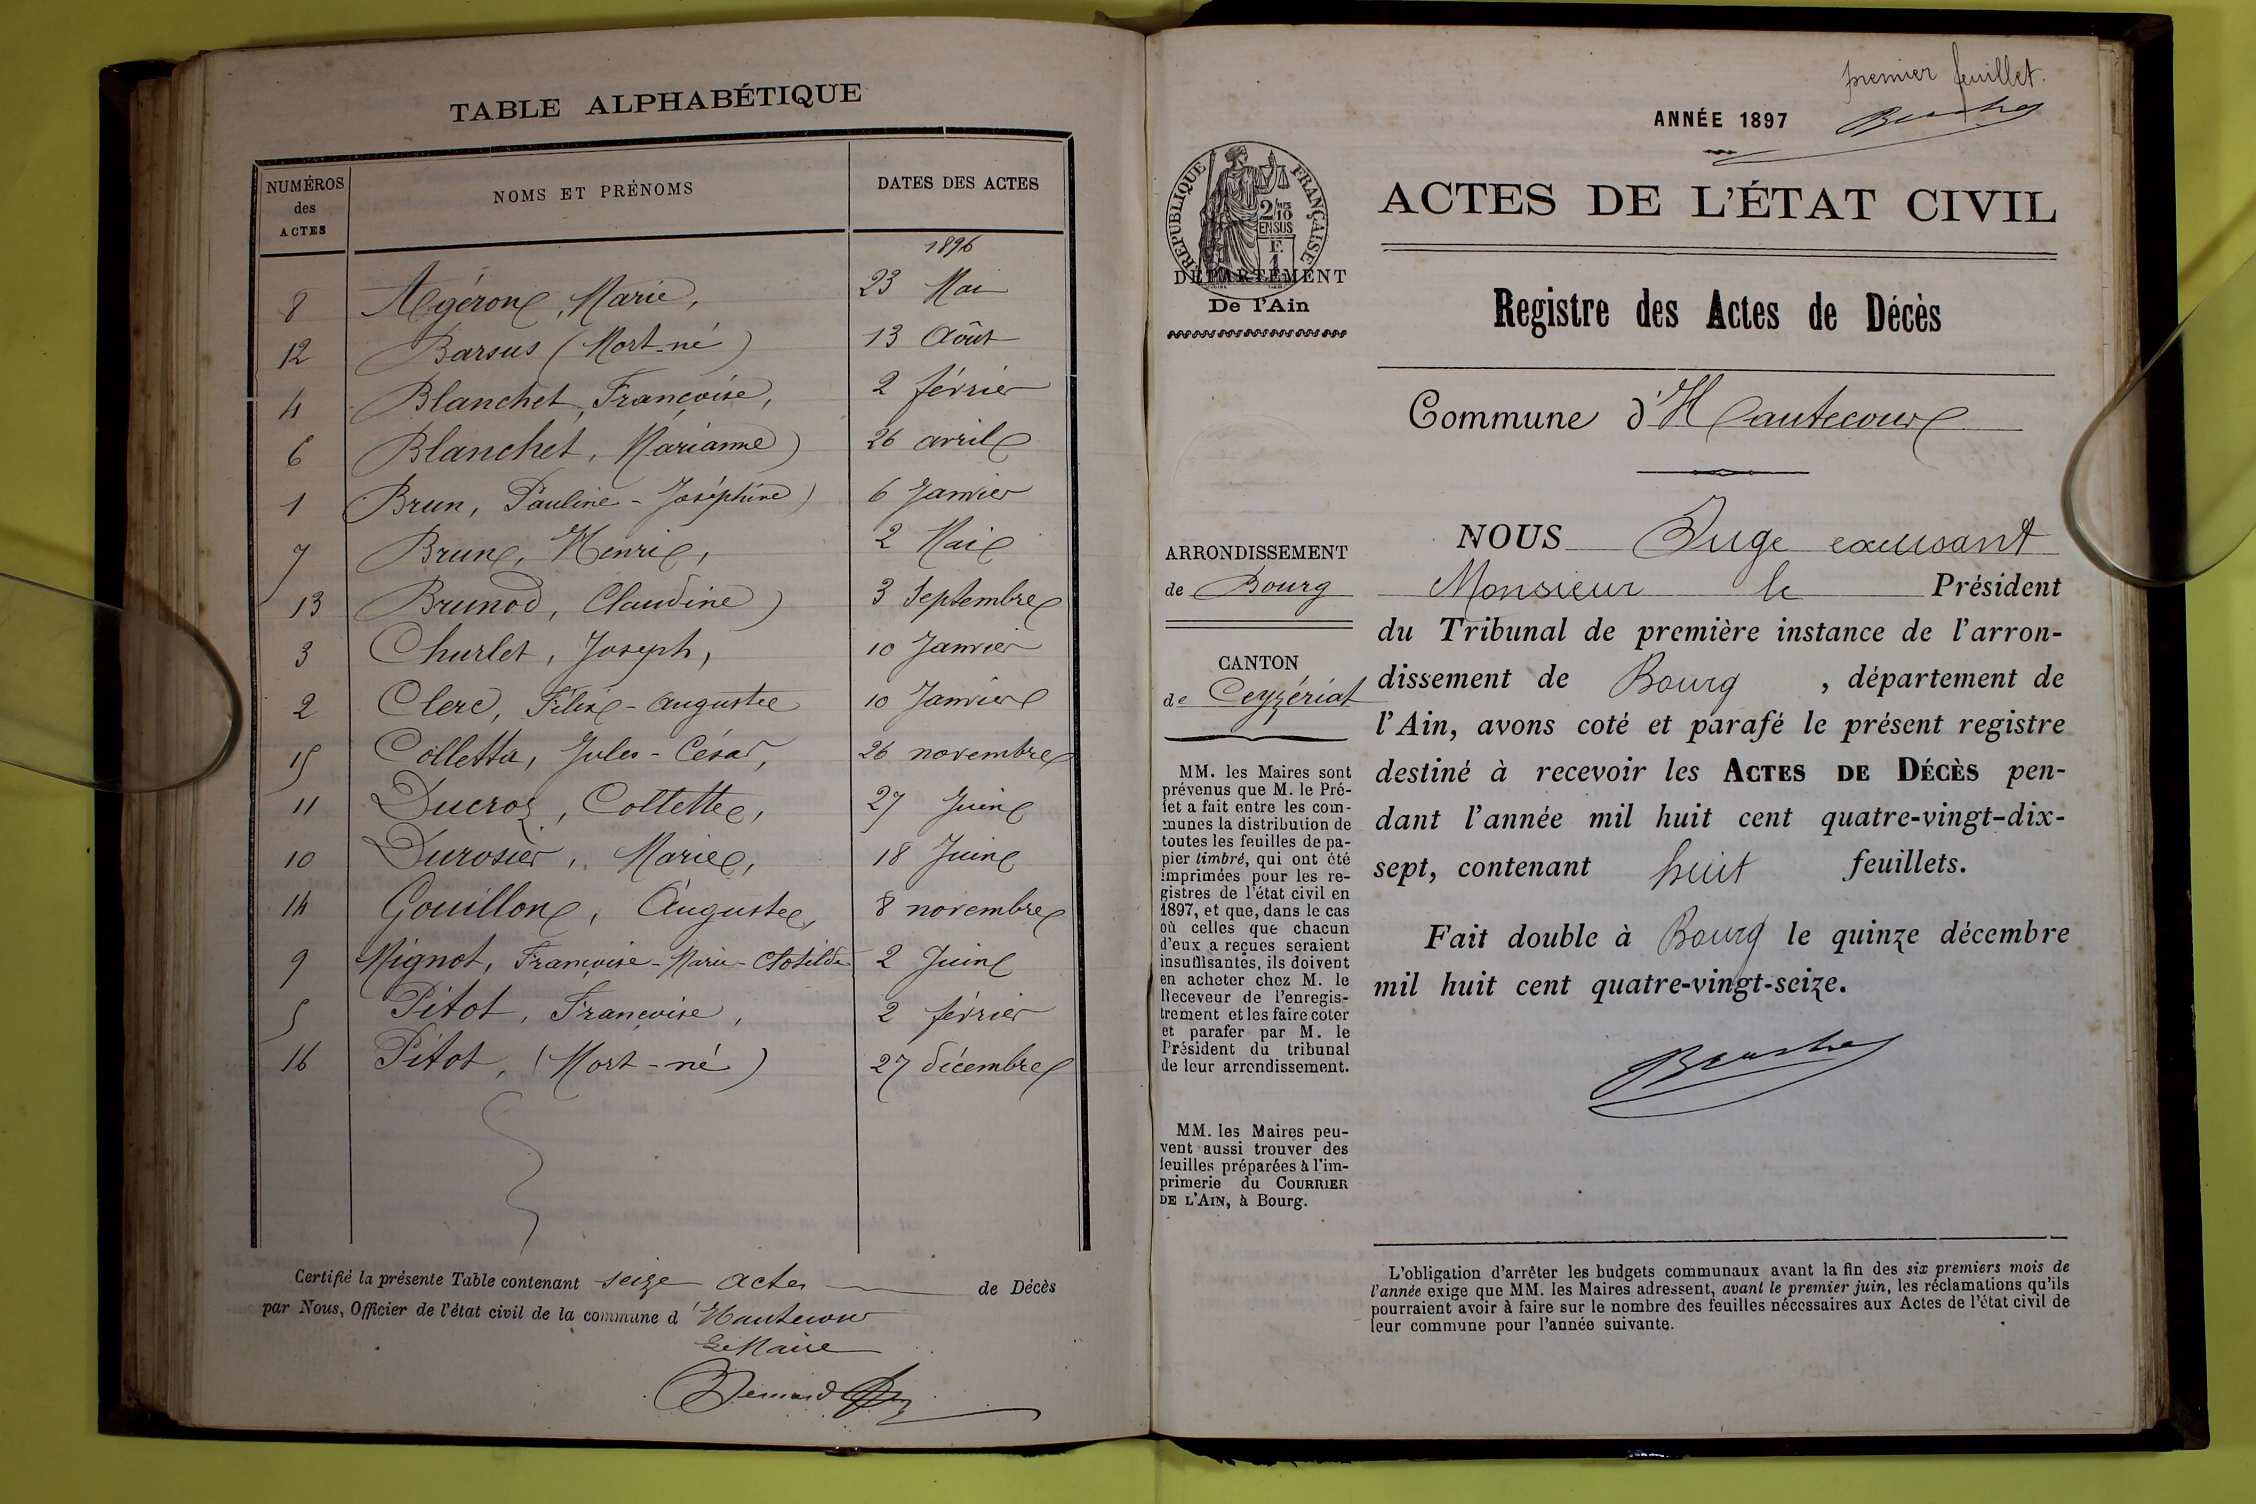 TABLE ALPHABÉTIQUE
NUMÉROS des ACTES NOMS ET PRÉNOMS DATES DES ACTES
1896
8 Agéron, Marie, 23 Mai
12 Barsus (Mort-né) 13 Août
4 Blanchet, Françoise, 2 février
6 Blanchet, Marianne 26 avril
1 Brun, Pauline-Joséphine 6 Janvier
7 Brun, Henri, 2 Mai
13 Brunod, Claudine 3 Septembre
3 Churlet, Joseph, 10 Janvier
2 Clerc, Félix-Auguste 10 Janvier
15 Colletta, Jules-César, 26 novembre
11 Ducroz, Collette, 27 Juin
10 Durosier, Marie, 18 Juin
14 Gouillon, Auguste, 8 novembre
9 Mignot, Françoise-Marie-Clotilde 2 Juin
5 Pitot, Françoise, 2 février
16 Pitot, (Mort-né) 27 décembre
Certifié la présente Table contenant seize actes de Décès
par Nous, Officier de l'état civil de la commune d'Hautecour
Le Maire
premier feuillet.
ANNÉE 1897
RÉPUBLIQUE FRANÇAISE
2/10
EN SUS
F.
1
DÉPARTEMENT
De l'Ain
ACTES DE L'ÉTAT CIVIL
Registre des Actes de Décès
Commune d'Hautecour
ARRONDISSEMENT
de Bourg
CANTON
de Ceyzériat
MM. les Maires sont
prévenus que M. le Pré-
fet a fait entre les com-
munes la distribution de
toutes les feuilles de pa-
pier timbré, qui ont été
imprimées pour les re-
gistres de l'état civil en
1897, et que, dans le cas
où celles que chacun
d'eux a reçues seraient
insuffisantes, ils doivent
en acheter chez M. le
Receveur de l'enregis-
trement et les faire coter
et parafer par M. le
Président du tribunal
de leur arrondissement.
MM. les Maires peu-
vent aussi trouver des
feuilles préparées à l'im-
primerie du COURRIER
DE L'AIN, à Bourg.
NOUS Juge excusant
Monsieur le Président
du Tribunal de première instance de l'arron-
dissement de Bourg, département de
l'Ain, avons coté et parafé le présent registre
destiné à recevoir les ACTES DE DÉCÈS pen-
dant l'année mil huit cent quatre-vingt-dix-
sept, contenant huit feuillets.
Fait double à Bourg le quinze décembre
mil huit cent quatre-vingt-seize.
L'obligation d'arrêter les budgets communaux avant la fin des six premiers mois de
l'année exige que MM. les Maires adressent, avant le premier juin, les réclamations qu'ils
pourraient avoir à faire sur le nombre des feuilles nécessaires aux Actes de l'état civil de
leur commune pour l'année suivante.